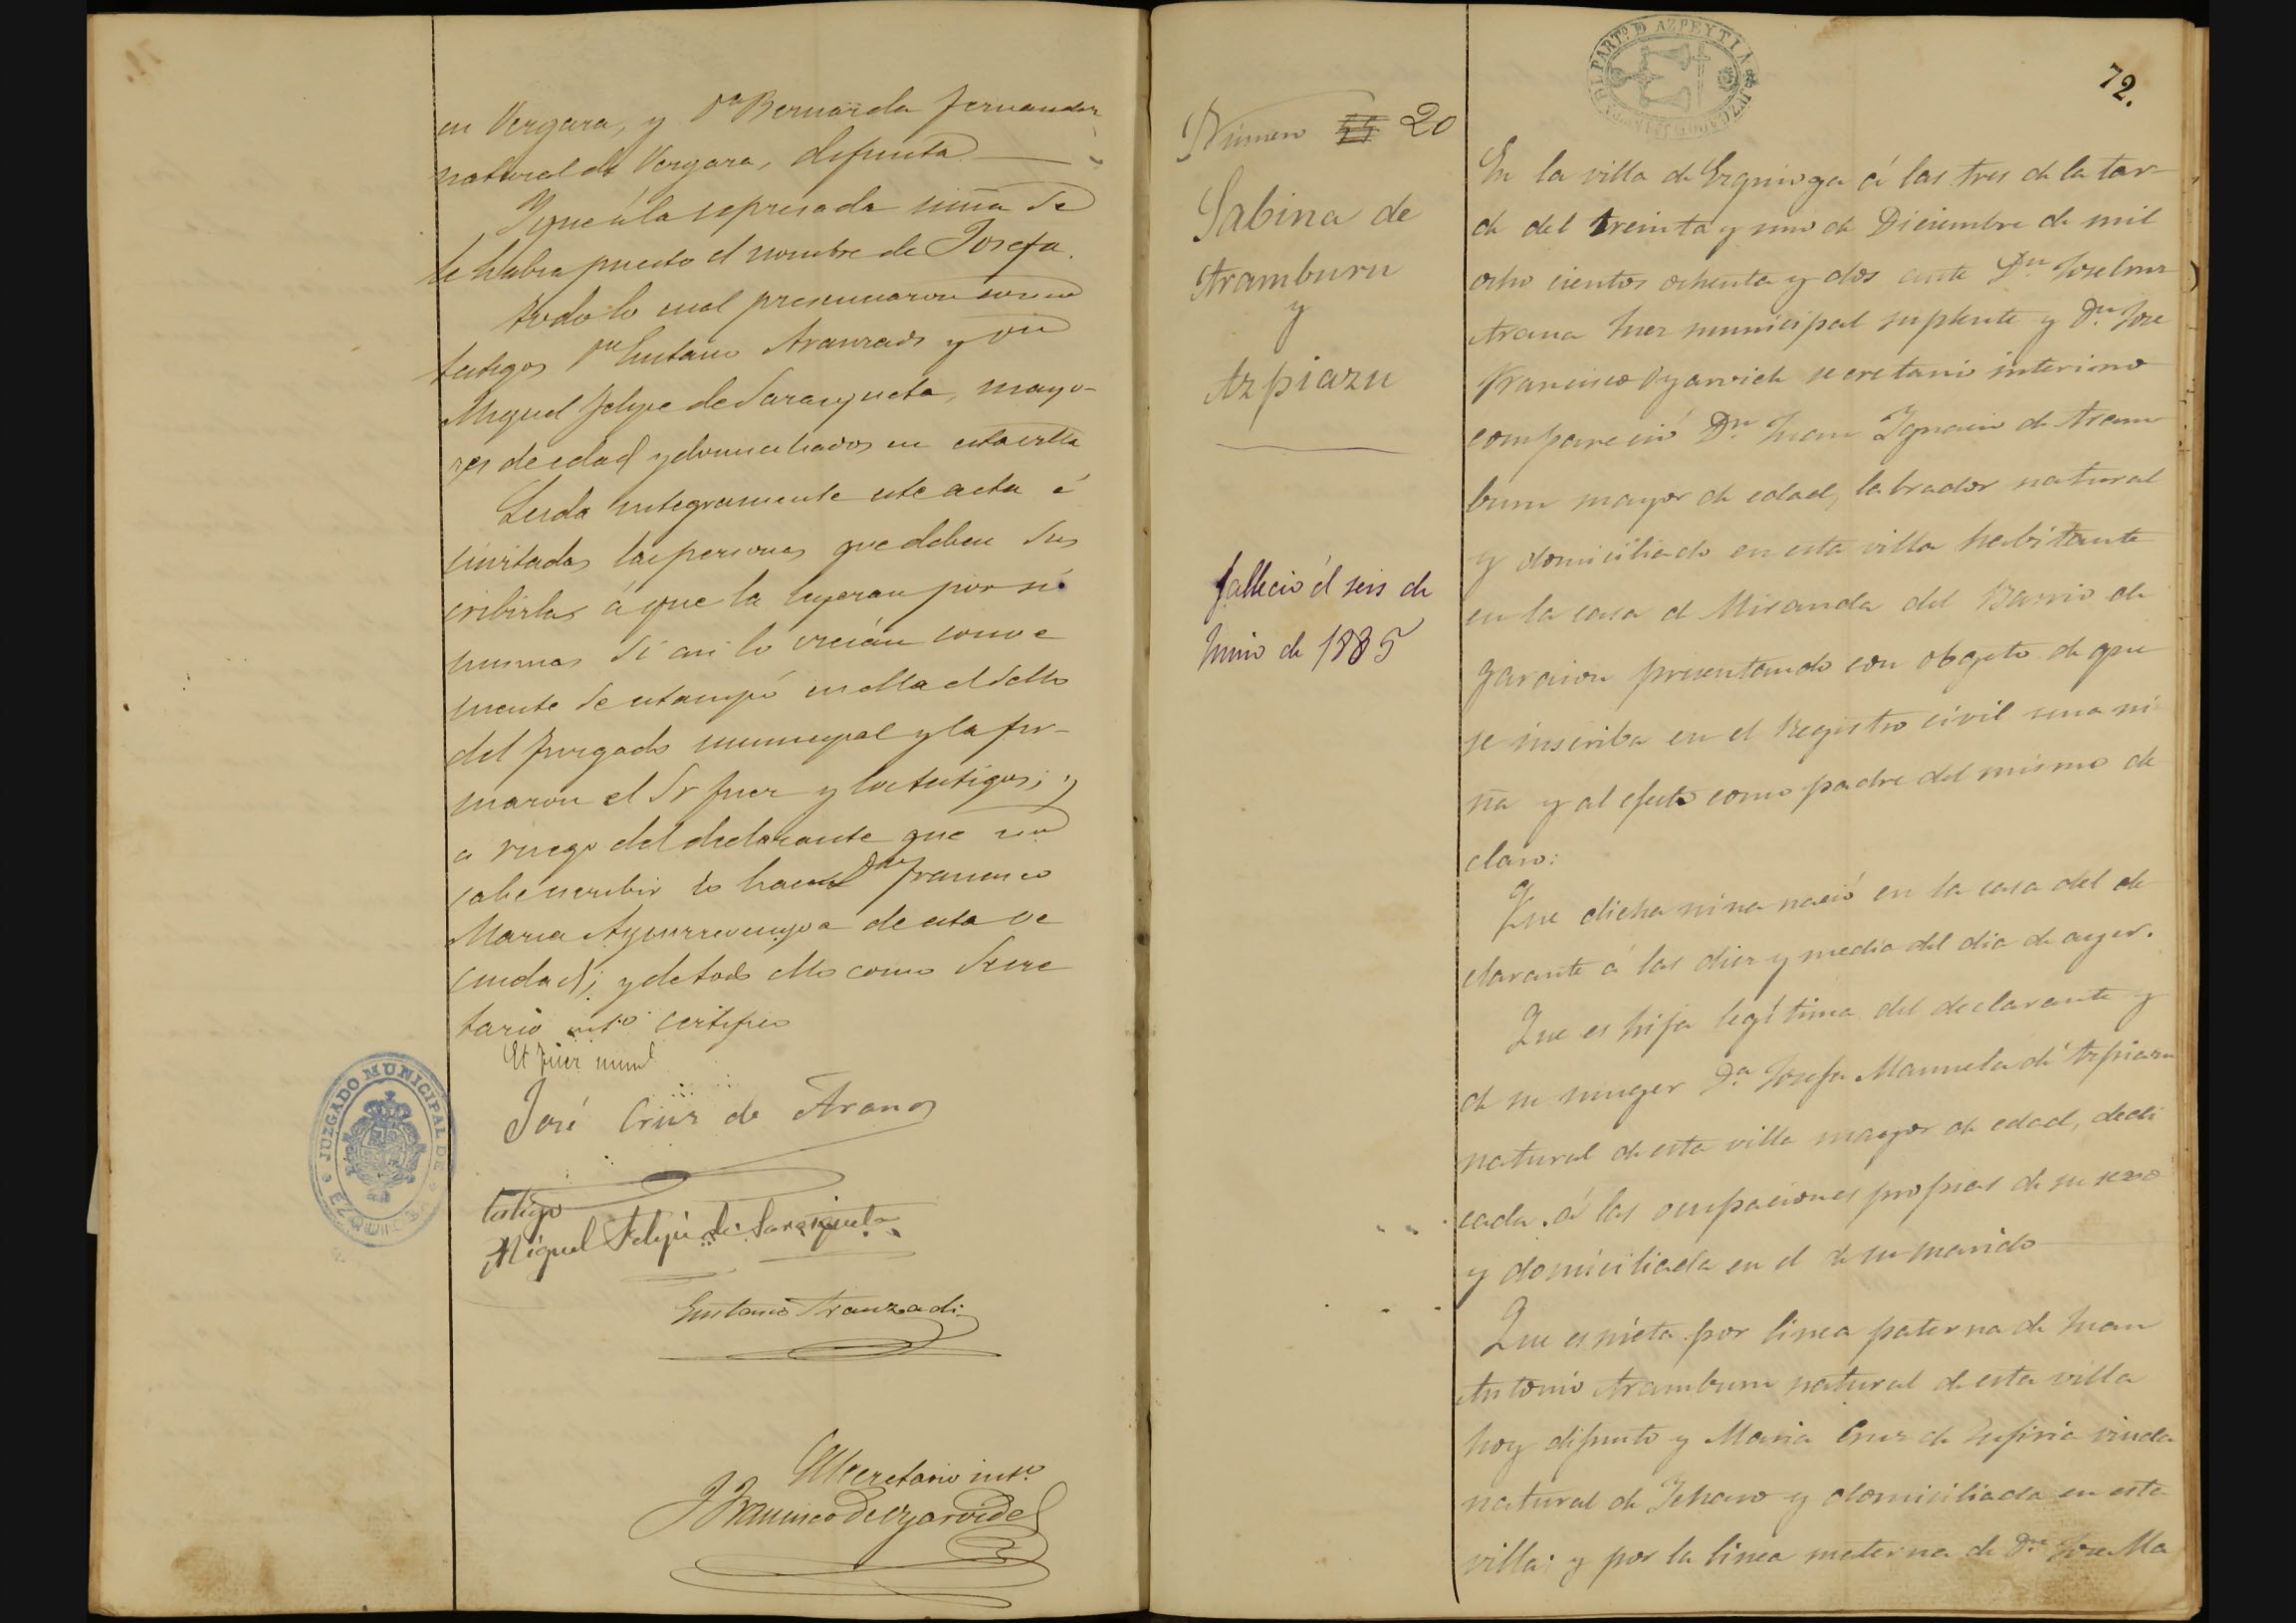 en Vergara, y Dª Bernarda Fernandez
natural de Vergara, difunta
Y que á la expresada niña se
le habia puesto el nombre de Josefa.
Todo lo cual presenciaron como
testigos Dn Eustasio Aranzadi y Dn
Miguel Felipe de Sarasqueta, mayo-
res de edad y domiciliados en esta villa
Leida integramente este acta é
invitadas las personas que deben sus
cribirlas á que la leyeran por si
mismas si asi lo creian conve
niente se estampó en ella el sello
del Juzgado municipal y la fir-
maron el Sr Juez y los testigos; y
a ruego del declarante que no
sabe escribir lo hace Dn Francisco
Maria de esta ve
cindad; y de todo ello como Secre
tario intº certifico
El Juez munl
José Cruz de Arana
JUZGADO MUNICIPAL DE
testigo
Miguel Felipe de Sarasqueta
Eustasio Aranzadi
El Secretario intº
J Francisco de Oyarvide
72.
PARTº D AZPEYTIA
Número 20
Sabina de
Aramburu
y
Azpiazu
falleció él seis de
Junio de 1885
En la villa de Ezquioga á las tres de la tar
de del treinta y uno de Diciembre de mil
ocho cientos ochenta y dos ante Dn Jose Cruz
Arana Juez municipal suplente y Dn Jose
Francisco Oyarvide secretario interino
compareció Dn Juan Ygnacio de Aram
buru mayor de edad, labrador natural
y domiciliado en esta villa habitante
en la casa de Miranda del Barrio de
presentando con objeto de que
se inscriba en el Registro civil una ni
ña y al efecto como padre del mismo de
claro:
Que dicha nina nació en la casa del de
clarante á las diez y media del dia de ayer.
Que es hija legítima del declarante y
de su muger Dª Josefa Manuela de Azpiazu
natural de esta villa mayor de edad, dedi
cada á las ocupaciones propias de su sexo
y domiciliada en el de su marido
Que es nieta por linea paterna de Juan
Antonio Aramburu natural de esta villa
hoy difunto y Maria Cruz de viuda
natural de Ichaso y domiciliada en esta
villa: y por la linea materna de Dn Jose Ma